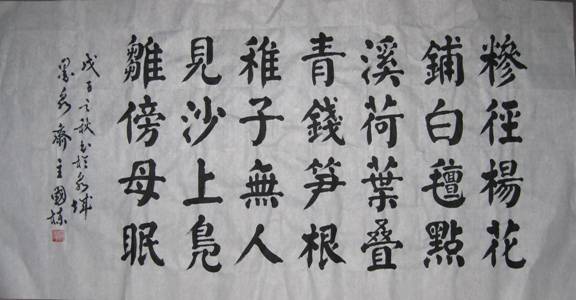 糝徑楊花
鋪白氈點
溪荷葉叠
青錢笋根
稚子無人
見沙上鳧
雛傍母眠
戊子之秋书於泉城
墨泉齋主國棟